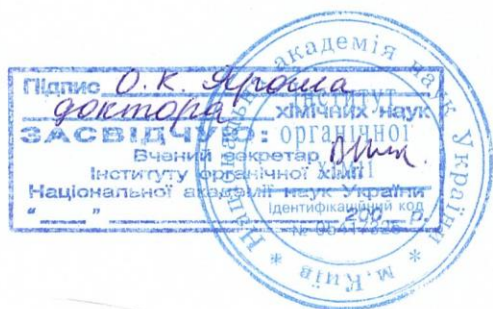 Підпис О.К. Яроша
доктора хімічних наук
ЗАСВІДЧУЮ:
Вчений секретар
Інституту органічної хімії
Національної академії наук України
"____"____________200__р.
Національна академія наук України * м.Київ *
Інститут
органічної
хімії
Ідентифікаційний код
№ 05417325